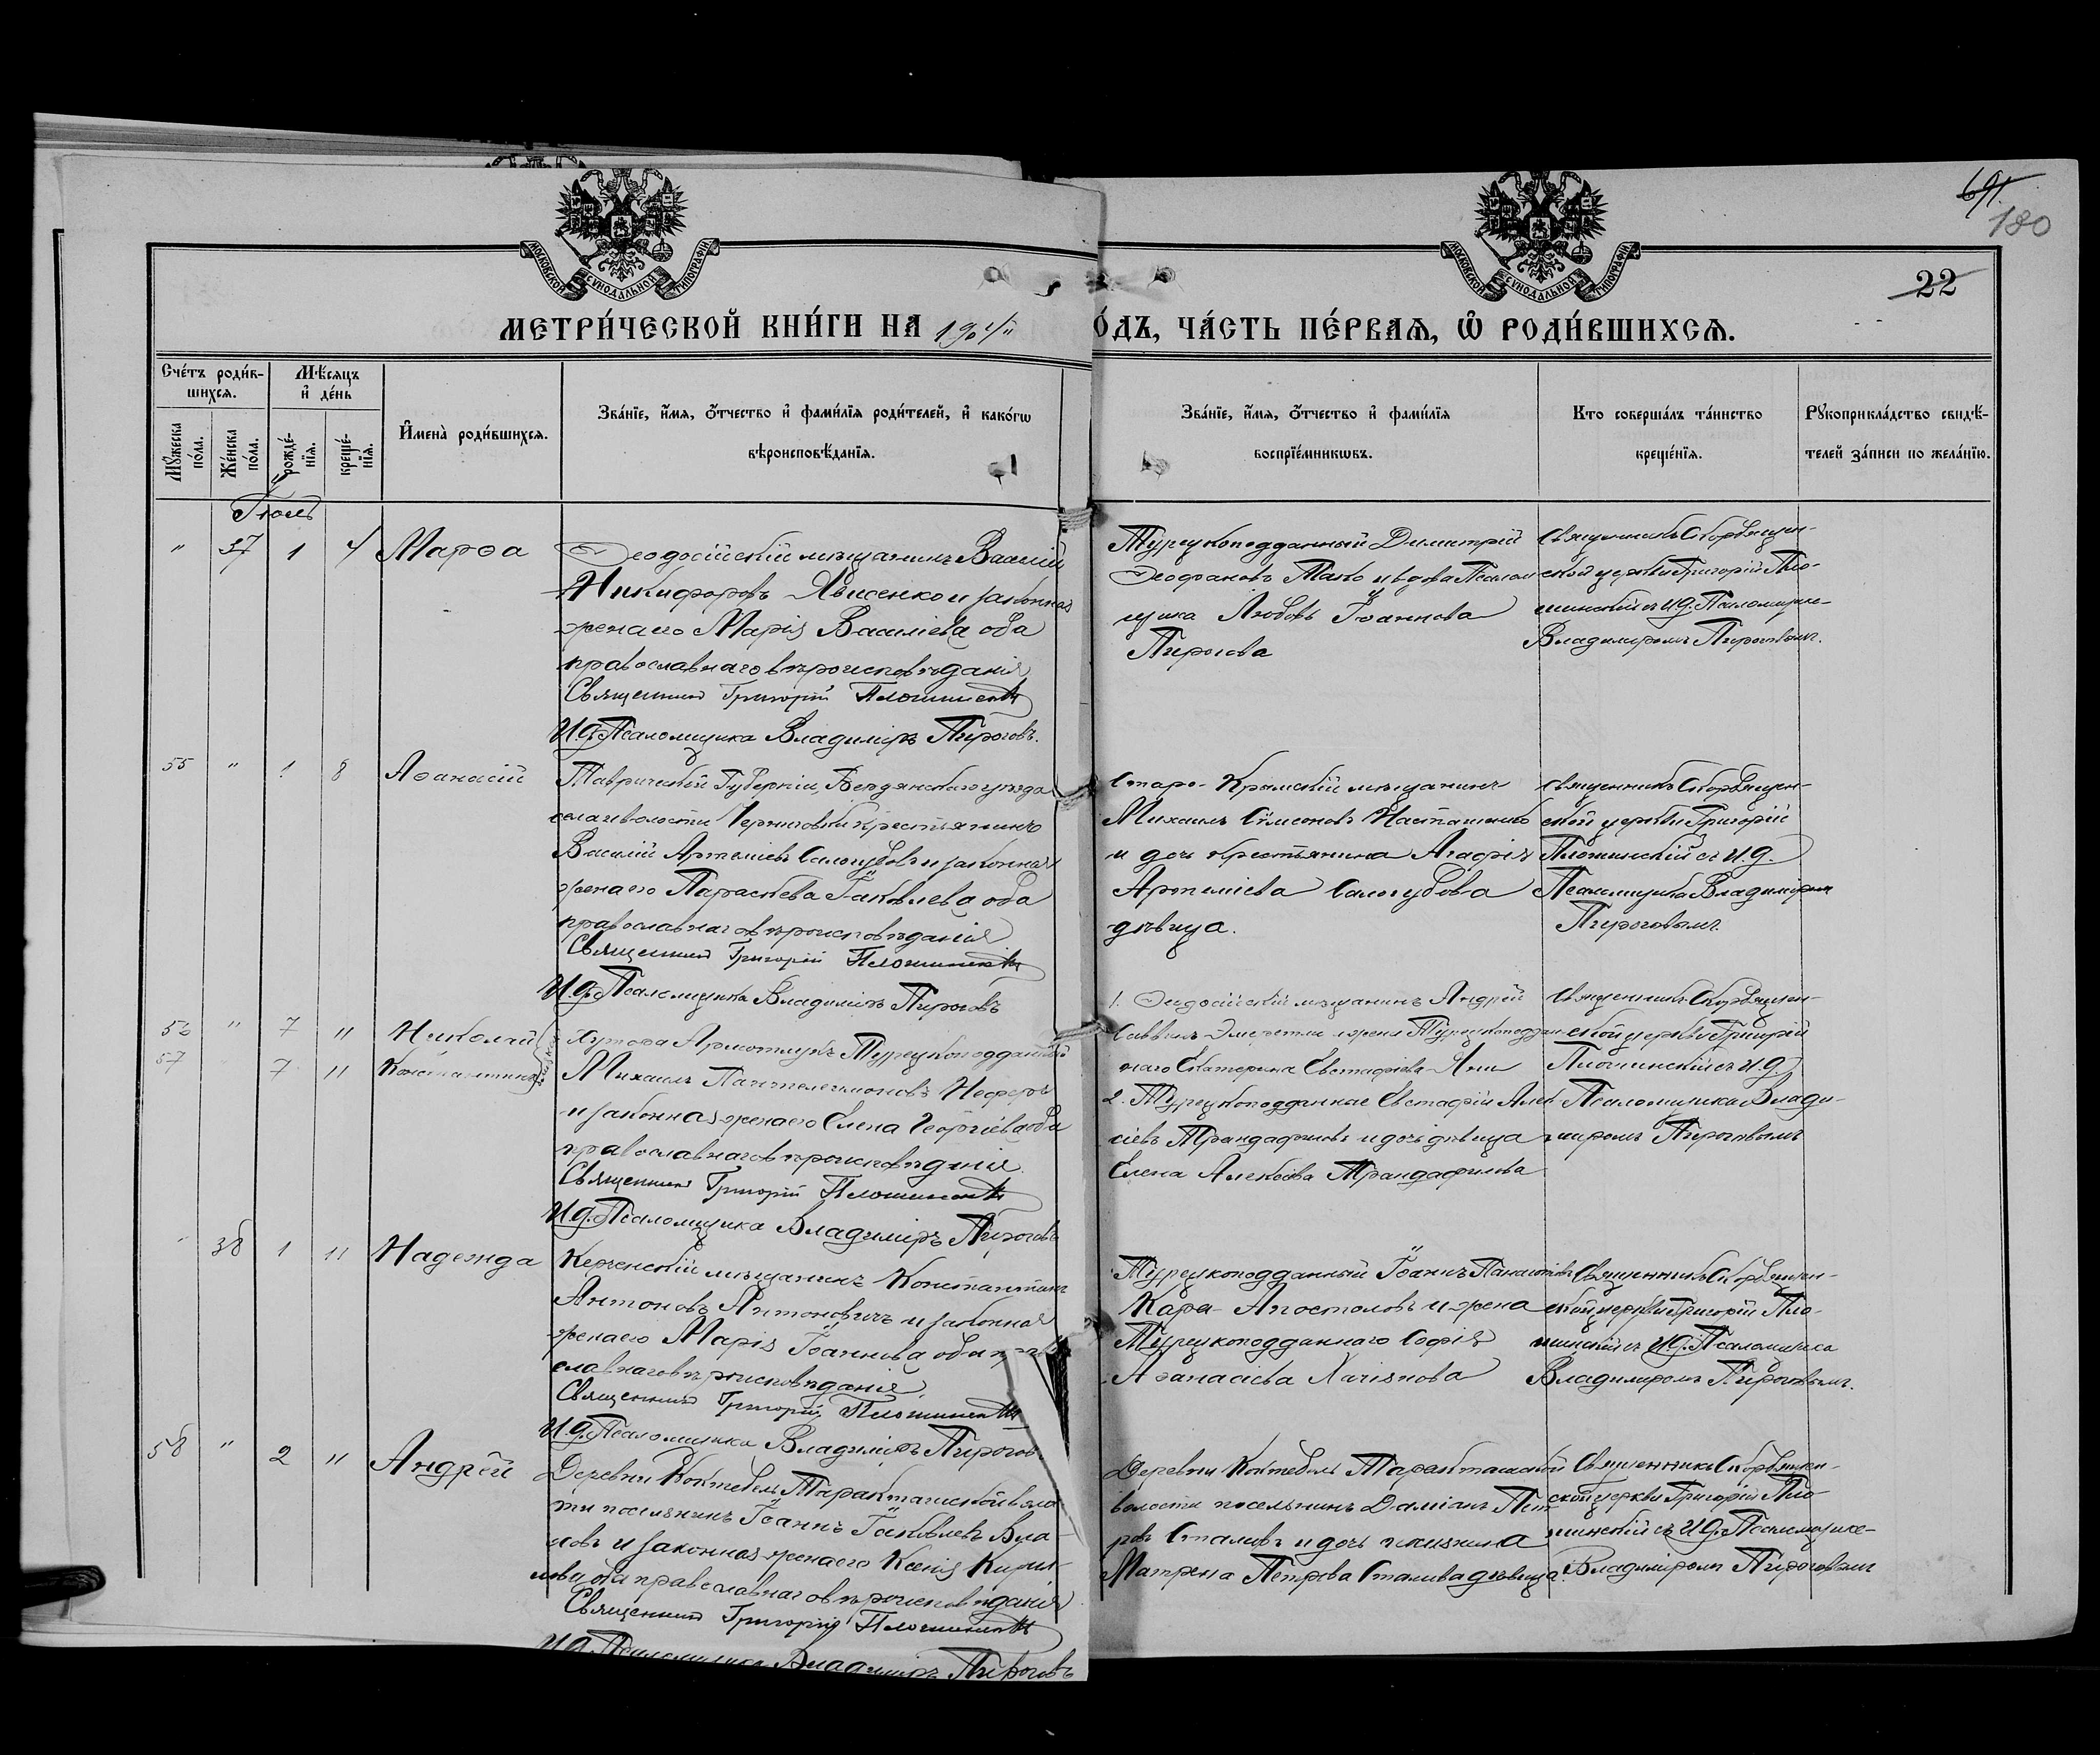 691.
180
22
МОСКОВСКОЙ СУНОДАЛЬНОЙ ТИПОГРАФІИ
МОСКОВСКОЙ СУНОДАЛЬНОЙ ТИПОГРАФІИ
МЕТРИ́ЧЕСКОЙ КНИ́ГИ НА 1904й
О́ДЪ, ЧА́СТЬ ПЕ́РВАѦ, Ѡ РОДИ́ВШИХСѦ.
Сче́тъ роди́в-
шихсѧ.
Мѣ́сѧцъ
и҆ де́нь
Мꙋ́жеска
по́ла.
Же́нска
по́ла.
рожде́-
нїѧ.
креще́-
нїѧ.
И҆мена̀ роди́вшихсѧ.
Зва́нїе, и҆́мѧ, ѻ҆́тчество и҆ фами́лїѧ роди́телей, и҆ како́гѡ
вѣроисповѣ́данїѧ.
Зва́нїе, и҆́мѧ, ѻ҆́тчество и҆ фами́лїѧ
воспрїе́мникѡвъ.
Кто соверша́лъ та́инство
креще́нїѧ.
Рꙋкоприкла́дство свидѣ́-
телей за́писи по жела́нїю.
Іюль
" 37 1 4 Марѳа
Ѳеодосійскій мѣщанинъ Василій
Никифоровъ Явисенко и законная
жена его Марія Василіева оба
православнаго вѣроисповѣданія
Священникъ Григорій
И.д. Псаломщика Владиміръ Пироговъ.
Турецкоподданный Димитрій
Ѳеофановъ и вдова Псалом
щика Любовь Іоаннова
Пирогова
Священникъ Скорбящен-
ской церкви Григорій Пло-
шинскій съ И.д. Псаломщика
Владиміромъ Пироговымъ.
55 " 1 8 Аѳанасій
Таврической Губерніи, Бердянскаго уѣзда
села и волости Черниговки крестьянинъ
Василій Артеміевъ Салогубовъ и законная
жена его Параскева Іаковлева оба
православнаго вѣроисповѣданія
Священникъ Григорій
И.д. Псаломщика Владиміръ Пироговъ
Старо-Крымскій мѣщанинъ
Михаилъ Сѵмеоновъ
и дочь крестьянина Агафія
Артеміева Салогубова
дѣвица.
Священникъ Скорбящен-
ской церкви Григорій
Плошинскій съ И.д.
Псаломщика Владиміромъ
Пироговымъ.
56 " 7 11 Николай
57 7 11 Константинъ
близнецы
Хутора Армотлукъ Турецкоподданный
Михаилъ Пантелеимоновъ
и законная жена его Елена Георгіева оба
православнаго вѣроисповѣданія.
Священникъ Григорій
И.д. Псаломщика Владиміръ Пироговъ
1. Ѳеодосійскій мѣщанинъ Андрей
Саввинъ и жена Турецкоподдан
наго Екатерина Евстафіева Яни
2. Турецкоподданные Евстафій Алек
сіевъ Трандафиловъ и дочь дѣвица
Елена Алексіева Трандафилова
Священникъ Скорбящен-
ской церкви Григорій
Плошинскій съ И.д.
Псаломщика Влади-
міромъ Пироговымъ
" 38 1 11 Надежда
Керченскій мѣщанинъ Константинъ
Антоновъ Антоновичъ и законная
жена его Марія Іоаннова оба право
славнаго вѣроисповѣданія.
Священникъ Григорій
И.д. Псаломщика Владиміръ Пирогов
Турецкоподданный Іоаннъ Панагіотовъ
Кара-Апостоловъ и жена
Турецкоподданнаго Софія
Аѳанасіева
Священникъ Скорбящен-
ской церкви Григорій Пло-
шинскій съ И.д. Псаломщика
Владиміромъ Пироговымъ.
58 " 2 11 Андрей
Деревни Коктебель Таракташской воло
сти поселянинъ Іоаннъ Іаковлевъ Вла-
совъ и законная жена его Ксенія Кирил
лова оба православнаго вѣроисповѣданія
Священникъ Григорій
И.д. Псаломщика Владиміръ Пироговъ
Деревни Коктебель Таракташской
волости поселянинъ Даміанъ Пет
ровъ Сталивъ и дочь
Матрена Петрова Сталива дѣвица.
Священникъ Скорбящен-
ской церкви Григорій Пло
шинскій съ И.д. Псаломщика
Владиміромъ Пироговымъ